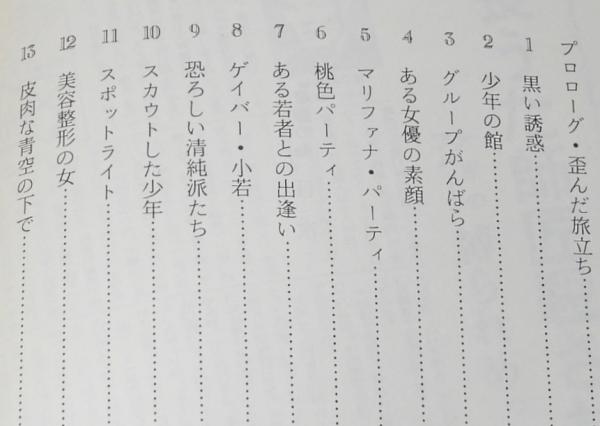 プロローグ・歪んだ旅立ち……………
1 黒い誘惑……………
2 少年の館……………
3 グループがんばら……………
4 ある女優の素顔……………
5 マリファナ・パーティ……………
6 桃色パーティ……………
7 ある若者との出逢い……………
8 ゲイバー・小若……………
9 恐ろしい清純派たち……………
10 スカウトした少年……………
11 スポットライト……………
12 美容整形の女……………
13 皮肉な青空の下で……………